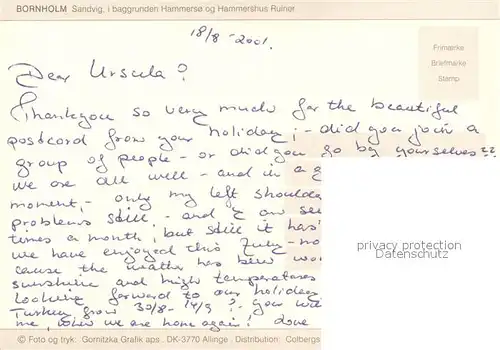 BORNHOLM Sandvig, i baggrunden Hammersø og Hammershus Ruiner
18/8-2001.
Frimærke
Briefmarke
Stamp
Dear Ursula?
Thankyou so very much for the beautiful
postcard from your holiday; - did you join a
group of people - or did you go by yourselves??
We are all well - and in a
moment, - only my left shoulder
problems still - and I am
times a month, but still it has
we have enjoyed this July -
cause the weather has been
sunshine and high temperatures
Looking forward to our holiday
Turkey from 30/8 - 14/9 ? you
me, when we are home again! Love
privacy protection
Datenschutz
© Foto og tryk: Gornitzka Grafik aps . DK-3770 Allinge . Distribution: Colbergs